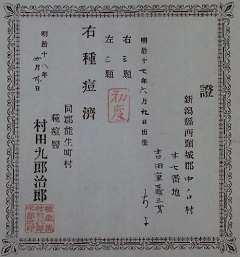 證
新潟縣西頸城郡中ノ口村
十七番地
吉田重義三女
明治十七年六月九日出生
右三顆
左二顆
初度
右種痘濟
明治十八年
同郡能生町村
種痘醫
村田九郎治郎